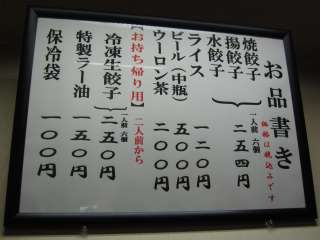 お品書き
価格は税込みです
焼餃子
揚餃子
水餃子
一人前 六個
二五四円
ライス
一二〇円
ビール(中瓶)
五〇〇円
ウーロン茶
二〇〇円
【お持ち帰り用】二人前から
冷凍生餃子
一人前 六個
二五〇円
特製ラー油
一五〇円
保冷袋
一〇〇円